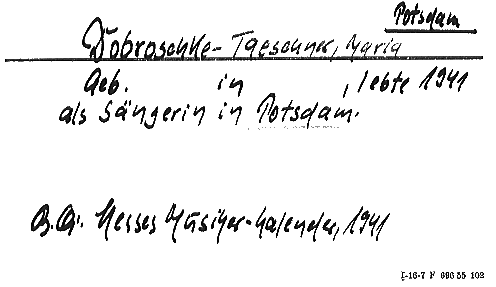 Potsdam
Dobroschke-Taeschner, Maria
Geb. in , lebte 1941
als Sängerin in Potsdam.
Hesses Musiker-Kalender, 1941
I-16-7 F 696 55 102